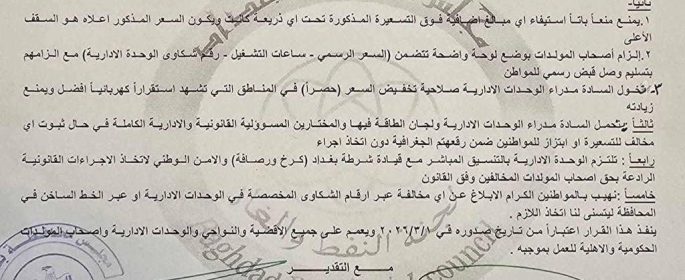 ثانياً:
١.يمنع منعاً باتاً استيفاء اي مبالغ اضافية فوق التسعيرة المذكورة تحت اي ذريعة كانت ويكون السعر المذكور اعلاه هو السقف
الأعلى
٢.إلزام أصحاب المولدات بوضع لوحة واضحة تتضمن (السعر الرسمي - ساعات التشغيل - رقم شكاوى الوحدة الادارية) مع الزامهم
بتسليم وصل قبض رسمي للمواطن
٣- تخول السادة مدراء الوحدات الادارية صلاحية تخفيض السعر (حصراً) في المناطق التي تشهد استقراراً كهربائياً افضل ويمنع
زيادته
ثالثاً: يتحمل السادة مدراء الوحدات الادارية ولجان الطاقة فيها والمختارين المسؤولية القانونية والادارية الكاملة في حال ثبوت اي
مخالف للتسعيرة او ابتزاز للمواطنين ضمن رقعتهم الجغرافية دون اتخاذ اجراء
رابعاً : تلتزم الوحدة الادارية بالتنسيق المباشر مع قيادة شرطة بغداد (كرخ ورصافة) والامن الوطني لاتخاذ الاجراءات القانونية
الرادعة بحق اصحاب المولدات المخالفين وفق القانون
خامساً: نهيب بالمواطنين الكرام الابلاغ عن اي مخالفة عبر ارقام الشكاوى المخصصة في الوحدات الادارية او عبر الخط الساخن في
المحافظة ليتسنى لنا اتخاذ اللازم .
ينفذ هذا القرار اعتباراً من تاريخ صدوره في ٢٠٢٦/٣/١ ويعمم على جميع الأقضية والنواحي والوحدات الادارية واصحاب المولدات
الحكومية والاهلية للعمل بموجبه .
مع التقدير
لجنة النفط والغاز
Baghdad council